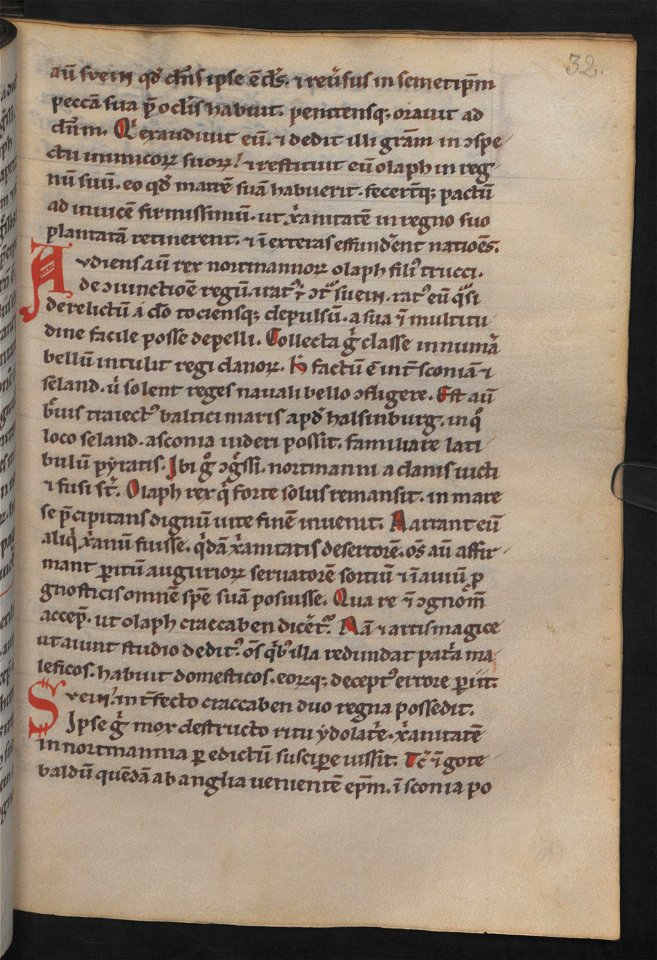 32.
aū svein qđ dn̄s ipse ē dš. ⁊ reu̾sus in semetip̄m
peccā sua p̄ oc̄lis habuit. penitensq; orauit ad
dn̄m. Q' exaudiuit eū. ⁊ dedit illi gr̄am in ɔspe
ctu inimicorꝝ suorꝝ! ⁊ restituit eū olaph in reg
nū suū. eo qđ matrē suā habuerit. fecert̄q; pactū
ad inuicē firmissimū. ut xp̄anitatē in regno suo
plantatā retinerent. ⁊ ī exteras effundēnt natiōes.
Avdiens aū rex nortmannorꝝ olaph fili' trucci.
de ɔiunctiōe regū. irat' ē ɔt' suein. rat' eū q̄si
derelictū a dō tociensq; depulsū. a sua ī multitu
dine facile posse depelli. Collecta ḡ classe innumā
bellū intulit regi danorꝝ. h̄ factū ē int̄ sconiā ⁊
seland. ū solent reges nauali bello ɔfligere. Est aū
b̄uis traiect' baltici maris apđ halsinburg. in q̄
loco seland. asconia uideri possit. familiare lati
bulū pyratis. Ibi ḡ ɔgssī. nortmanni a danis uicti
⁊ fusi st̄. Olaph rex q̄ forte solus remansit. in mare
se p̄cipitans dignū uite finē inuenit. Narrant eū
aliq̄ xp̄anū fuisse. q̄dā xp̄anitatis desertorē. oēs aū affir
mant peritū auguriorꝝ seruatorē sortiū ⁊ ī auiū p
gnosticis omnē spē suā posuisse. Qua re ⁊ ɔgnom̄
accep̄. ut olaph craccaben dicēt'. Nā ⁊ artis magice
ut aiunt studio dedit'. oēs q̄b' illa redundat pat̄a ma
leficos. habuit domesticos. eorꝝq; decept' errore periit.
Svein! int̄fecto craccaben duo regna possedit.
Ipse ḡ mox destructo ritu ydolatr̄e. xp̄anitatē
in nortmannia per edictū suscipere iussit. Tc̄ ⁊ gote
baldū quendā ab anglia uenientē ep̄m. ī sconia po